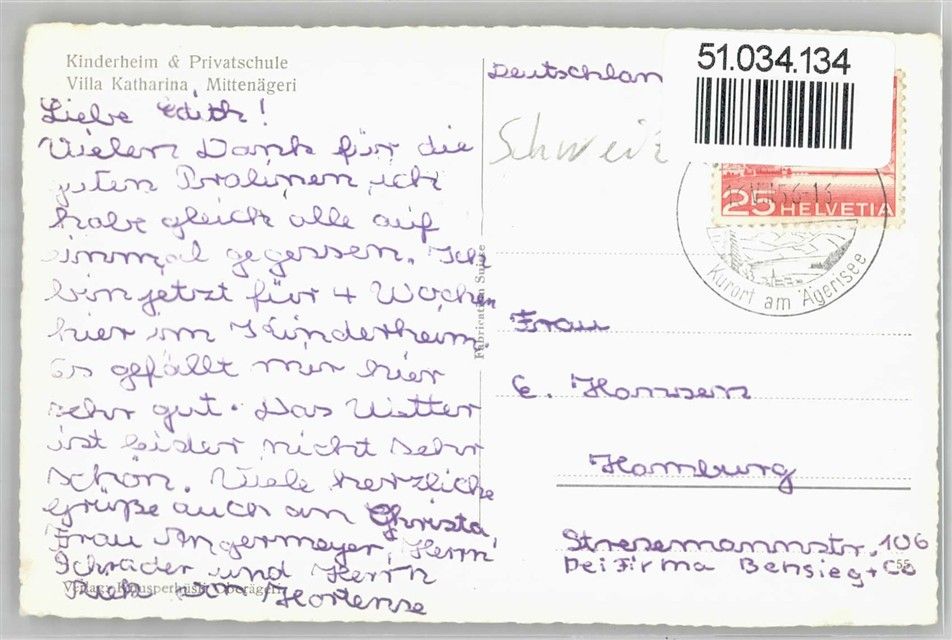 Kinderheim & Privatschule
Villa Katharina, Mittenägeri
Liebe Edith!
Vielen Dank für die
guten Pralinen, ich
habe gleich alle auf
einmal gegessen. Ich
bin jetzt für 4 Wochen
hier im Kinderheim.
Es gefällt mir hier
sehr gut. Das Wetter
ist leider nicht sehr
schön. Viele herzliche
Grüße auch an Christa,
Frau Angermayer, Herrn
Schrader und Herrn
Hortense
Verlag: Oberägeri
Fabrication Suisse
Deutschlan
Schweiz
51.034.134
56-16
25 HELVETIA
Kurort am Ägerisee
Frau
E. Hansen
Hamburg
Stresemannstr. 106
bei Firma Bensieg + Co
55